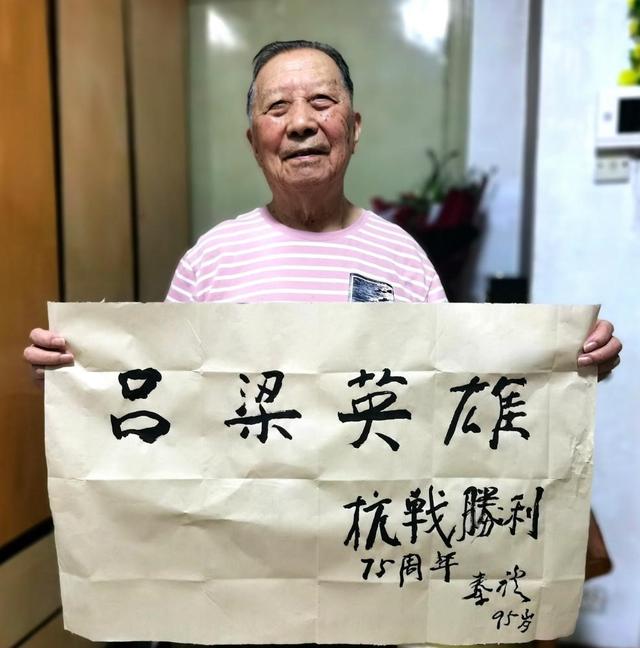 吕梁英雄
抗戰勝利
75周年
95岁